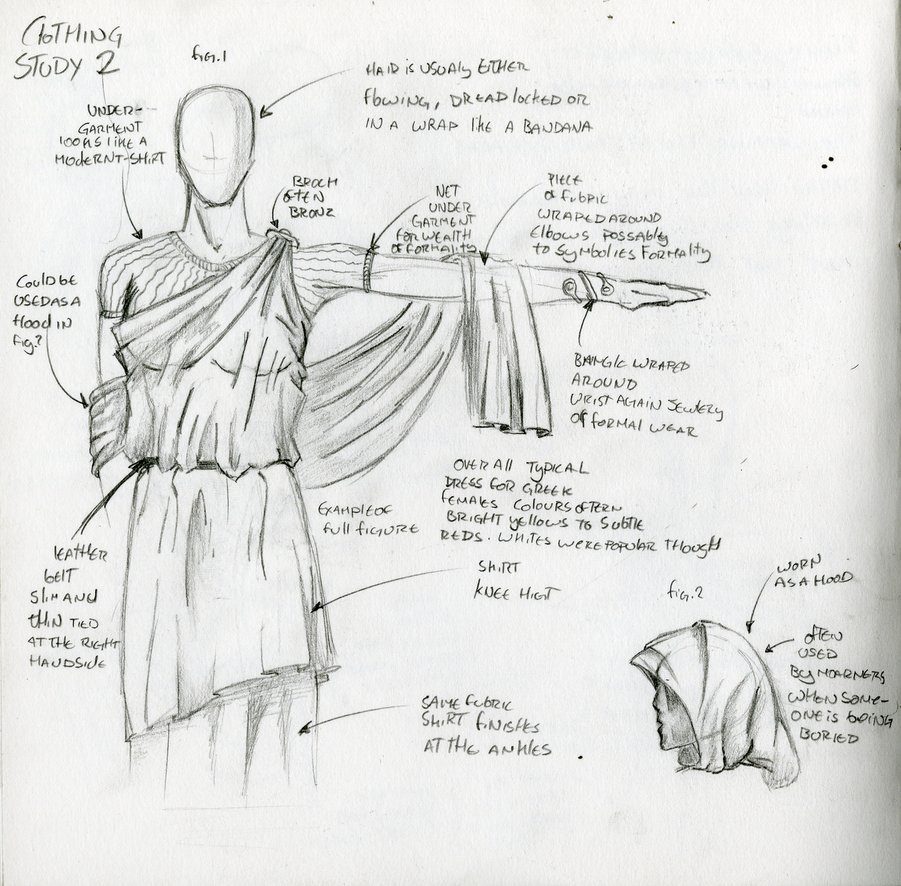 CLOTHING
STUDY 2
fig.1
HAIR IS USUALY EITHER
FLOWING, DREADLOCKED OR
IN A WRAP LIKE A BANDANA
UNDER-
GARMENT
LOOKS LIKE A
MODERN T-SHIRT
BROCH
OFTEN
BRONZ
NET
UNDER
GARMENT
FOR WEALTH
OF FORMALITY
PIECE
OF FUBRIC
WRAPED AROUND
ELBOWS POSSABLY
TO SYMBOLIES FORMALITY
COULD BE
USED AS A
HOOD IN
Fig.2
BANGLE WRAPED
AROUND
WRIST AGAIN JEWLERY
OF FORMAL WEAR
OVERALL TYPICAL
DRESS FOR GREEK
FEMALES COLOURS OFTERN
BRIGHT YELLOWS TO SUBTLE
REDS. WHITES WERE POPULAR THOUGH
EXAMPLE OF
FULL FIGURE
LEATHER
BELT
SLIM AND
THIN TIED
AT THE RIGHT
HANDSIDE
SHIRT
KNEE HIGT
SAME FUBRIC
SHIRT FINISHES
AT THE ANKLES
fig.2
WORN
AS A HOOD
OFTEN
USED
BY MOARNERS
WHEN SOME-
ONE IS BEING
BURIED